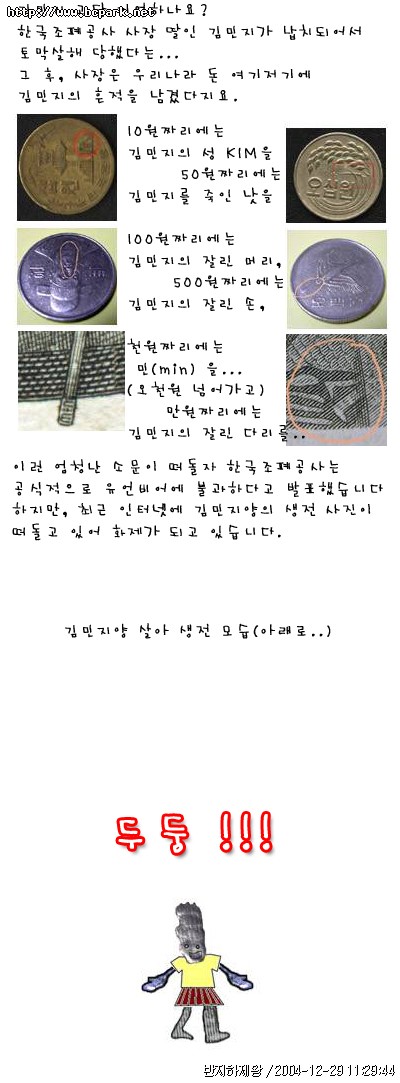 http://www.bcpark.net
하나요?
한국조폐공사 사장 딸인 김민지가 납치되어서
토막살해 당했다는...
그 후, 사장은 우리나라 돈 여기저기에
김민지의 흔적을 남겼다지요.
10원짜리에는
김민지의 성 KIM을
50원짜리에는
김민지를 죽인 낫을
오십원
100원짜리에는
김민지의 잘린 머리,
500원짜리에는
김민지의 잘린 손,
천원짜리에는
민(min) 을...
(오천원 넘어가고)
만원짜리에는
김민지의 잘린 다리를..
이런 엄청난 소문이 떠돌자 한국조폐공사는
공식적으로 유언비어에 불과하다고 발표했습니다
하지만, 최근 인터넷에 김민지양의 생전 사진이
떠돌고 있어 화제가 되고 있습니다.
김민지양 살아 생전 모습(아래로..)
두둥 !!!
반지하제왕 / 2004-12-29 11:29:44